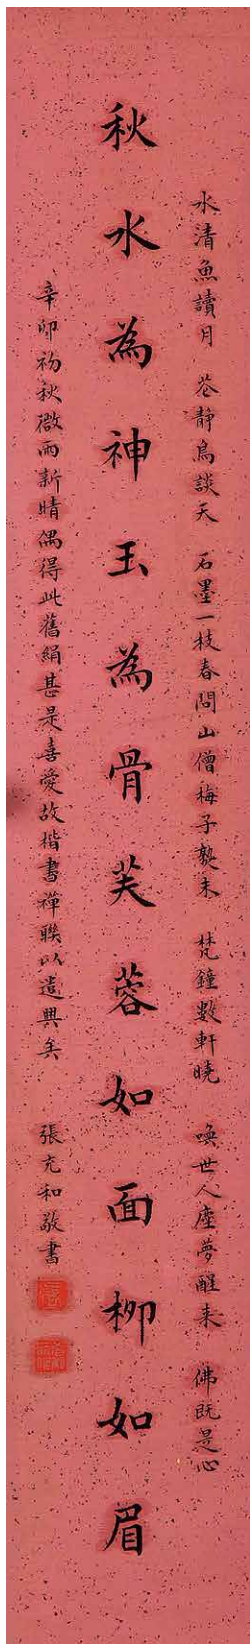 水清魚讀月 花静鳥談天 石墨一枝春問山僧梅子熟未 梵鐘數軒曉 喚世人塵夢醒来 佛既是心
秋水為神玉為骨芙蓉如面柳如眉
辛卯初秋微雨新晴偶得此舊絹甚是喜愛故楷書禪聯以遣興矣 張充和敬書